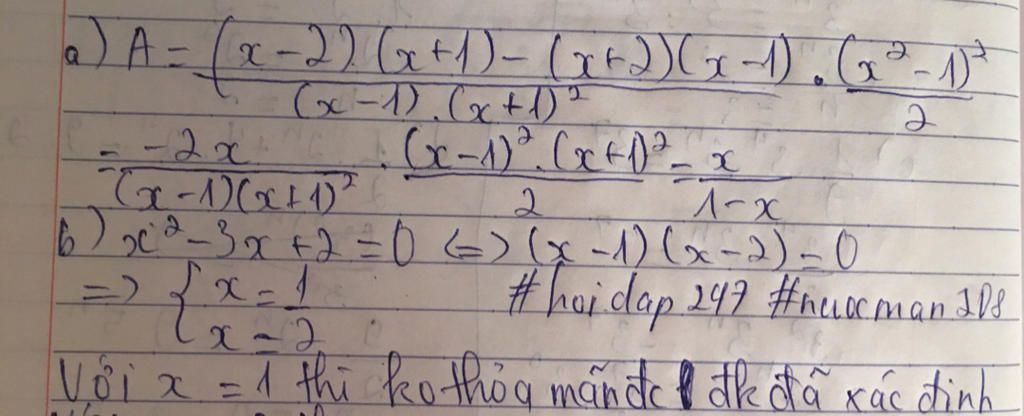 a) A = (x-2).(x+1) - (x+2)(x-1) / (x-1).(x+1)² . (x²-1)² / 2
= -2x / (x-1)(x+1)² . (x-1)².(x+1)² / 2 = x / 1-x
b) x² - 3x + 2 = 0 <=> (x-1)(x-2) = 0
=> { x = 1 #hoidap247 #nuocman
x = 2
Với x = 1 thì ko thỏa mãn đc đk đã xác định